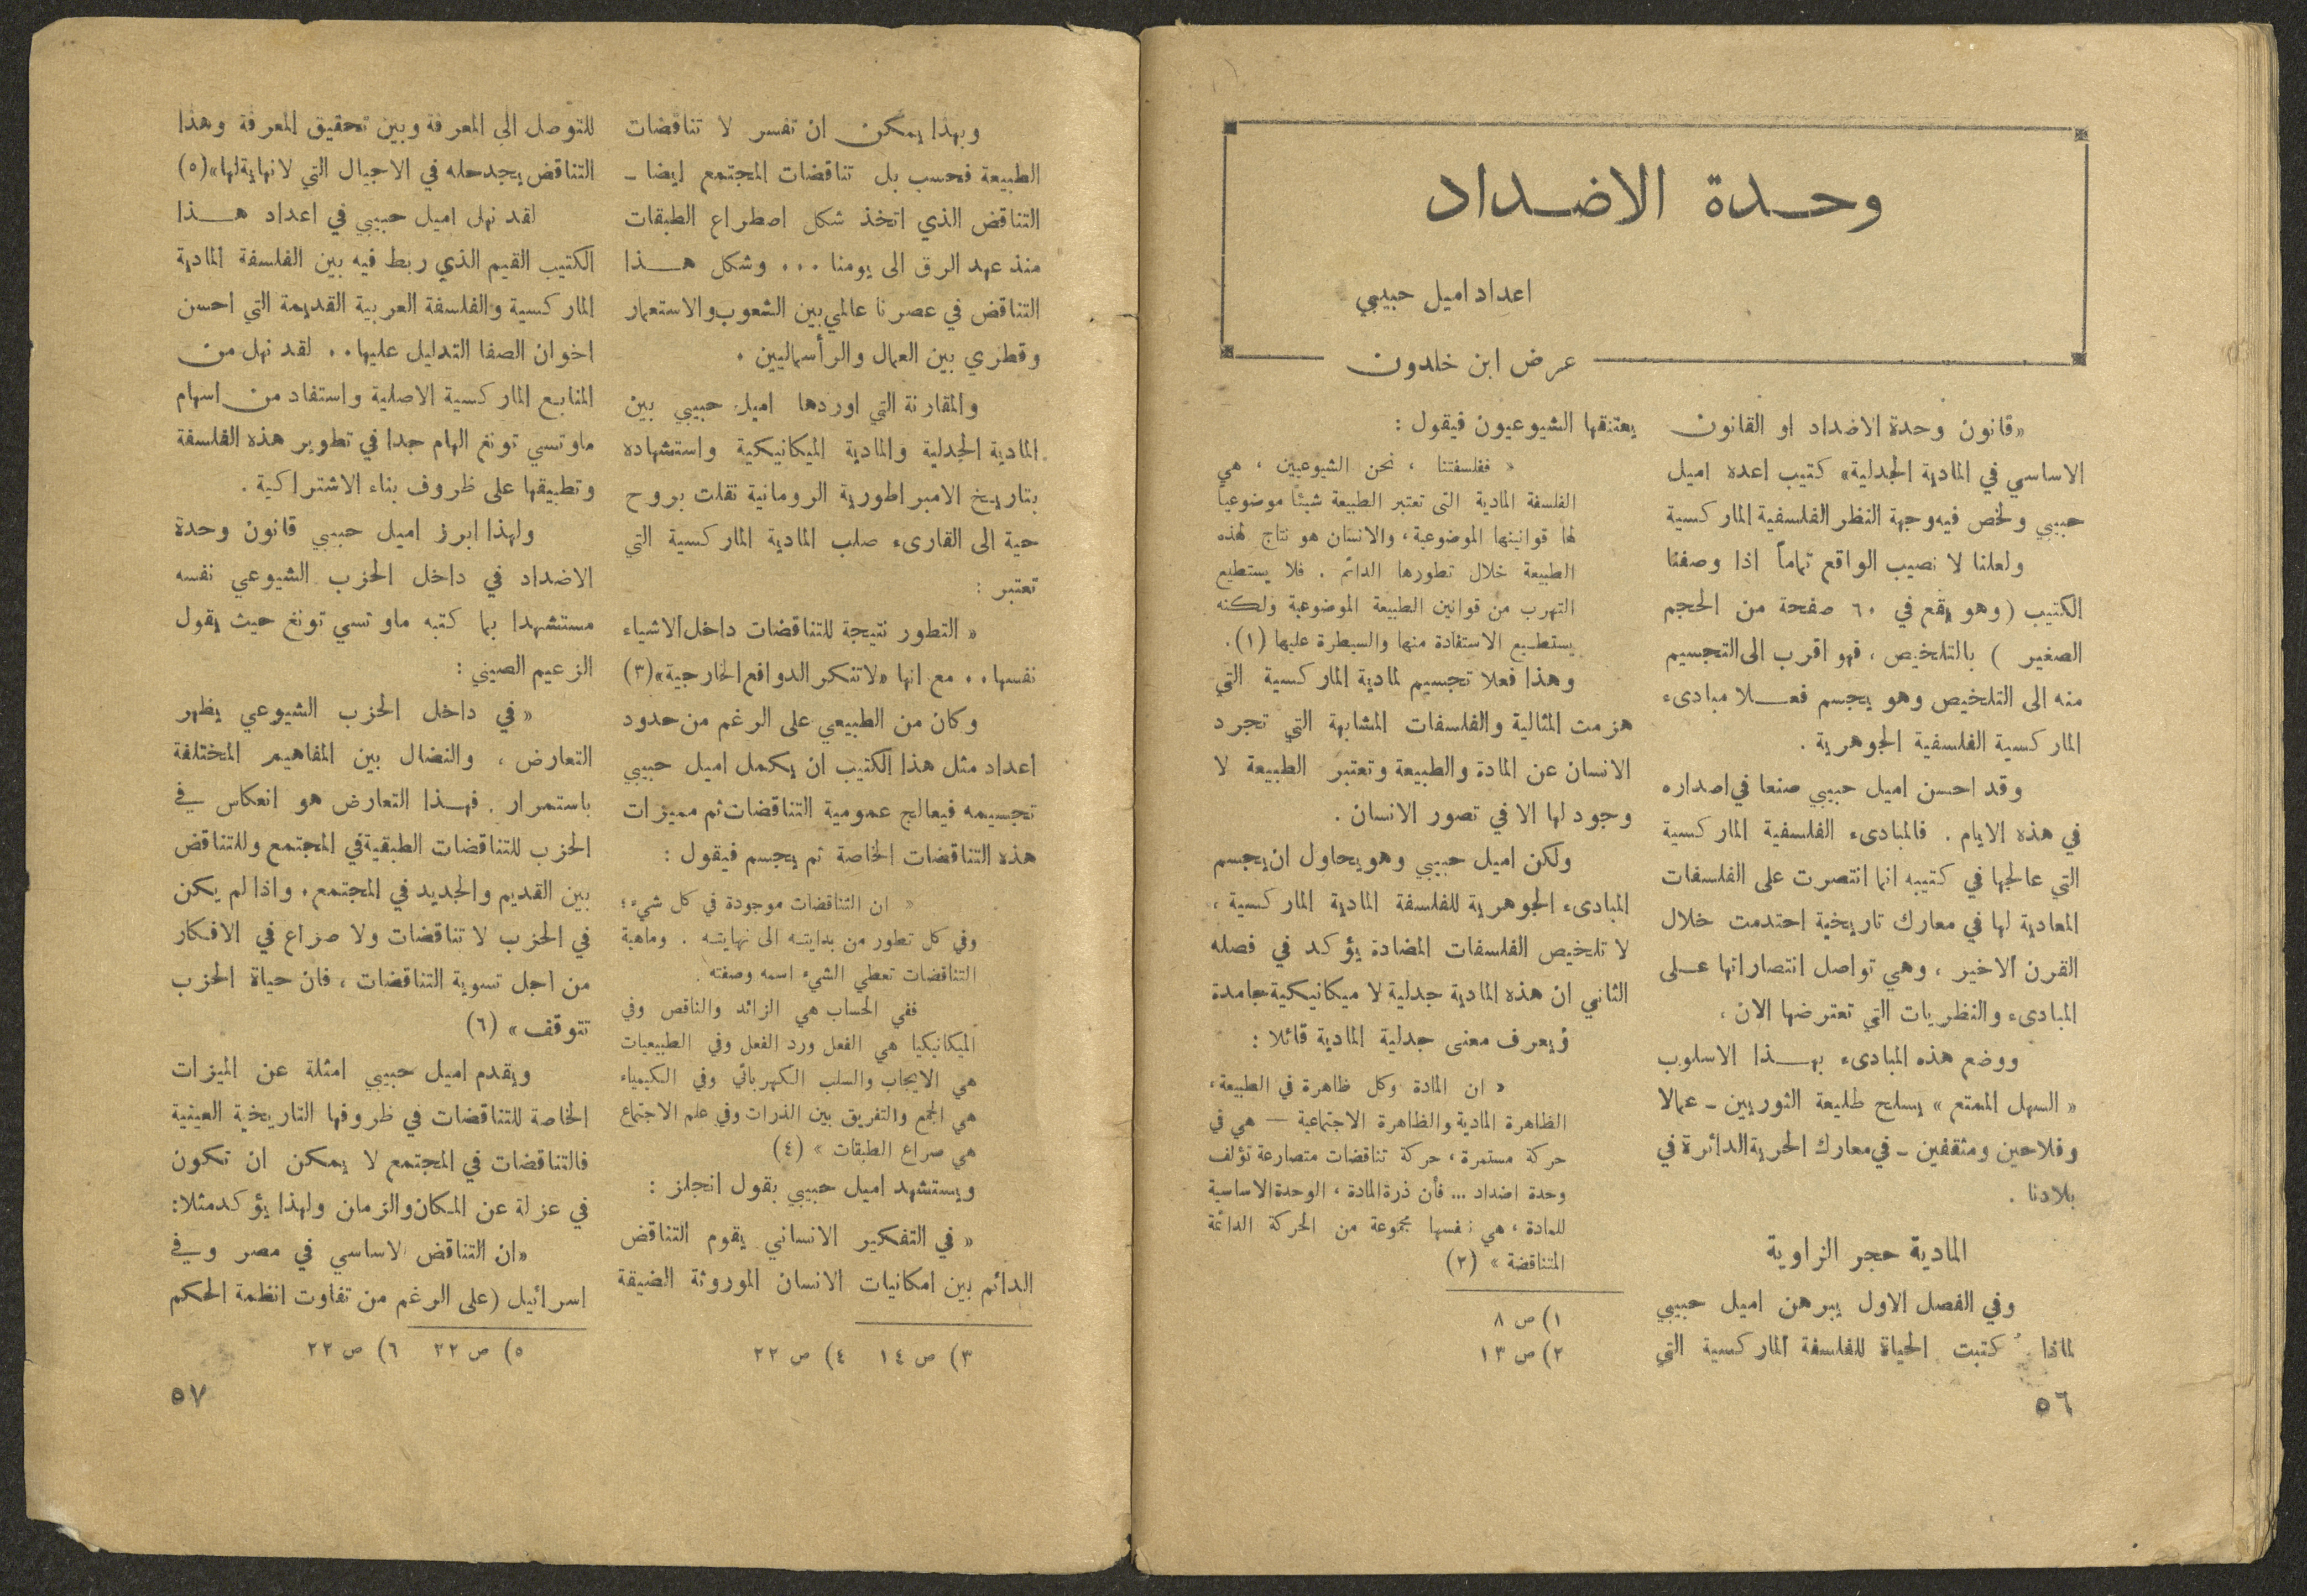 وحدة الاضداد
اعداد اميل حبيبي
عرض ابن خلدون
«قانون وحدة الاضداد او القانون
الاساسي في المادية الجدلية» كتيب اعده اميل
حبيبي ولخص فيه وجهة النظر الفلسفية الماركسية
ولعلنا لا نصيب الواقع تماماً اذا وصفنا
الكتيب (وهو يقع في ٦٠ صفحة من الحجم
الصغير ) بالتلخيص ، فهو اقرب الى التجسيم
منه الى التلخيص وهو يجسم فعلا مبادىء
الماركسية الفلسفية الجوهرية .
وقد احسن اميل حبيبي صنعا في اصداره
في هذه الايام . فالمبادىء الفلسفية الماركسية
التي عالجها في كتيبه انما انتصرت على الفلسفات
المعادية لها في معارك تاريخية احتدمت خلال
القرن الاخير ، وهي تواصل انتصاراتها على
المبادىء والنظريات التي تعترضها الان ،
ووضع هذه المبادىء بهذا الاسلوب
« السهل الممتع » يسلح طليعة الثوريين - عمالا
وفلاحين ومثقفين - في معارك الحرية الدائرة في
بلادنا .
المادية حجر الزاوية
وفي الفصل الاول يبرهن اميل حبيبي
لماذا كُتبت الحياة للفلسفة الماركسية التي
٥٦
يعتنقها الشيوعيون فيقول :
« ففلسفتنا ، نحن الشيوعيين ، هي
الفلسفة المادية التى تعتبر الطبيعة شيئاً موضوعياً
لها قوانينها الموضوعية ، والانسان هو نتاج لهذه
الطبيعة خلال تطورها الدائم . فلا يستطيع
التهرب من قوانين الطبيعة الموضوعية ولكنه
يستطيع الاستفادة منها والسيطرة عليها (١).
وهذا فعلا تجسيم لمادية الماركسية التي
هزمت المثالية والفلسفات المشابهة التي تجرد
الانسان عن المادة والطبيعة وتعتبر الطبيعة لا
وجود لها الا في تصور الانسان .
ولكن اميل حبيبي وهو يحاول ان يجسم
المبادىء الجوهرية للفلسفة المادية الماركسية ،
لا تلخيص الفلسفات المضادة يؤكد في فصله
الثاني ان هذه المادية جدلية لا ميكانيكية جامدة
ويعرف معنى جدلية المادية قائلا :
« ان المادة وكل ظاهرة في الطبيعة ،
الظاهرة المادية والظاهرة الاجتماعية — هي في
حركة مستمرة ، حركة تناقضات متصارعة تؤلف
وحدة اضداد ... فأن ذرة المادة ، الوحدة الاساسية
للمادة ، هي نفسها مجموعة من الحركة الدائمة
المتناقضة » (٢)
١) ص ٨
٢) ص ١٣
وبهذا يمكن ان تفسر لا تناقضات
الطبيعة فحسب بل تناقضات المجتمع ايضا -
التناقض الذي اتخذ شكل اصطراع الطبقات
منذ عهد الرق الى يومنا ... وشكل هذا
التناقض في عصرنا عالمي بين الشعوب والاستعمار
وقطري بين العمال والرأسماليين .
والمقارنة التي اوردها اميل حبيبي بين
المادية الجدلية والمادية الميكانيكية واستشهاده
بتاريخ الامبراطورية الرومانية نقلت بروح
حية الى القارىء صلب المادية الماركسية التي
تعتبر :
« التطور نتيجة للتناقضات داخل الاشياء
نفسها .. مع انها «لا تنكر الدوافع الخارجية»(٣)
وكان من الطبيعي على الرغم من حدود
اعداد مثل هذا الكتيب ان يكمل اميل حبيبي
تجسيمه فيعالج عمومية التناقضات ثم مميزات
هذه التناقضات الخاصة ثم يجسم فيقول :
« ان التناقضات موجودة في كل شيء ؛
وفي كل تطور من بدايته الى نهايته . وماهية
التناقضات تعطي الشيء اسمه وصفته .
ففي الحساب هي الزائد والناقص وفي
الميكانيكيا هي الفعل ورد الفعل وفي الطبيعيات
هي الايجاب والسلب الكهربائي وفي الكيمياء
هي الجمع والتفريق بين الذرات وفي علم الاجتماع
هي صراع الطبقات » (٤)
ويستشهد اميل حبيبي بقول انجلز :
« في التفكير الانساني يقوم التناقض
الدائم بين امكانيات الانسان الموروثة الضيقة
٣) ص ١٤ ٤) ص ٢٢
للتوصل الى المعرفة وبين تحقيق المعرفة وهذا
التناقض يجد حله في الاجيال التي لا نهاية لها»(٥)
لقد نهل اميل حبيبي في اعداد هذا
الكتيب القيم الذي ربط فيه بين الفلسفة المادية
الماركسية والفلسفة العربية القديمة التي احسن
اخوان الصفا التدليل عليها .. لقد نهل من
المنابع الماركسية الاصلية واستفاد من اسهام
ماوتسي تونغ الهام جدا في تطوير هذه الفلسفة
وتطبيقها على ظروف بناء الاشتراكية .
ولهذا ابرز اميل حبيبي قانون وحدة
الاضداد في داخل الحزب الشيوعي نفسه
مستشهدا بما كتبه ماو تسي تونغ حيث يقول
الزعيم الصيني :
« في داخل الحزب الشيوعي يظهر
التعارض ، والنضال بين المفاهيم المختلفة
باستمرار . فهذا التعارض هو انعكاس في
الحزب للتناقضات الطبقية في المجتمع وللتناقض
بين القديم والجديد في المجتمع . واذا لم يكن
في الحزب لا تناقضات ولا صراع في الافكار
من اجل تسوية التناقضات ، فان حياة الحزب
تتوقف » (٦)
ويقدم اميل حبيبي امثلة عن الميزات
الخاصة للتناقضات في ظروفها التاريخية العينية
فالتناقضات في المجتمع لا يمكن ان تكون
في عزلة عن المكان والزمان ولهذا يؤكد مثلا:
«ان التناقض الاساسي في مصر وفي
اسرائيل (على الرغم من تفاوت انظمة الحكم
٥) ص ٢٢ ٦) ص ٢٢
٥٧